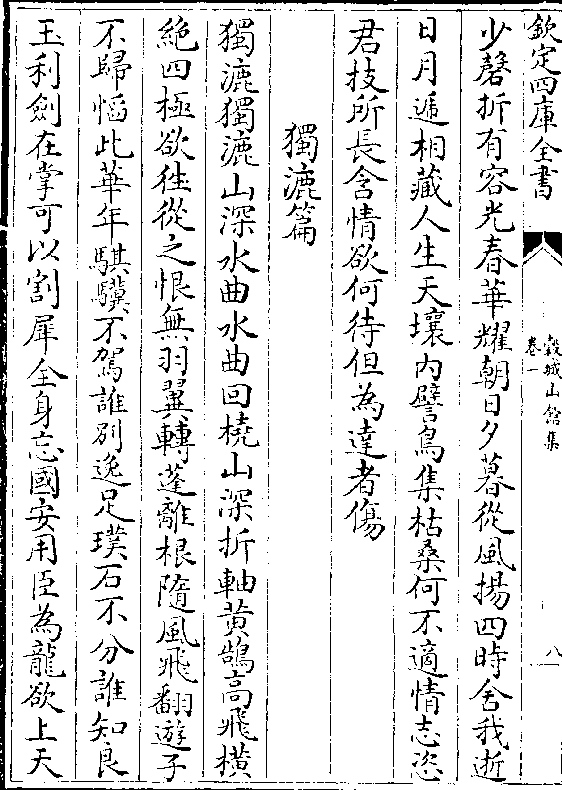 欽定四庫全書
穀城山館集
卷一
八
少磬折有容光春華耀朝日夕暮從風揚四時舍我逝
日月遞相藏人生天壤内譬鳥集枯桑何不適情志恣
君技所長含情欲何待但為達者傷
獨漉篇
獨漉獨漉山深水曲水曲回橈山深折軸黄鵠高飛横
絶四極欲往從之恨無羽翼轉蓬離根隨風飛翻遊子
不歸惱此華年騏驥不駕誰别逸足璞石不分誰知良
玉利劍在掌可以割犀全身忘國安用臣為龍欲上天